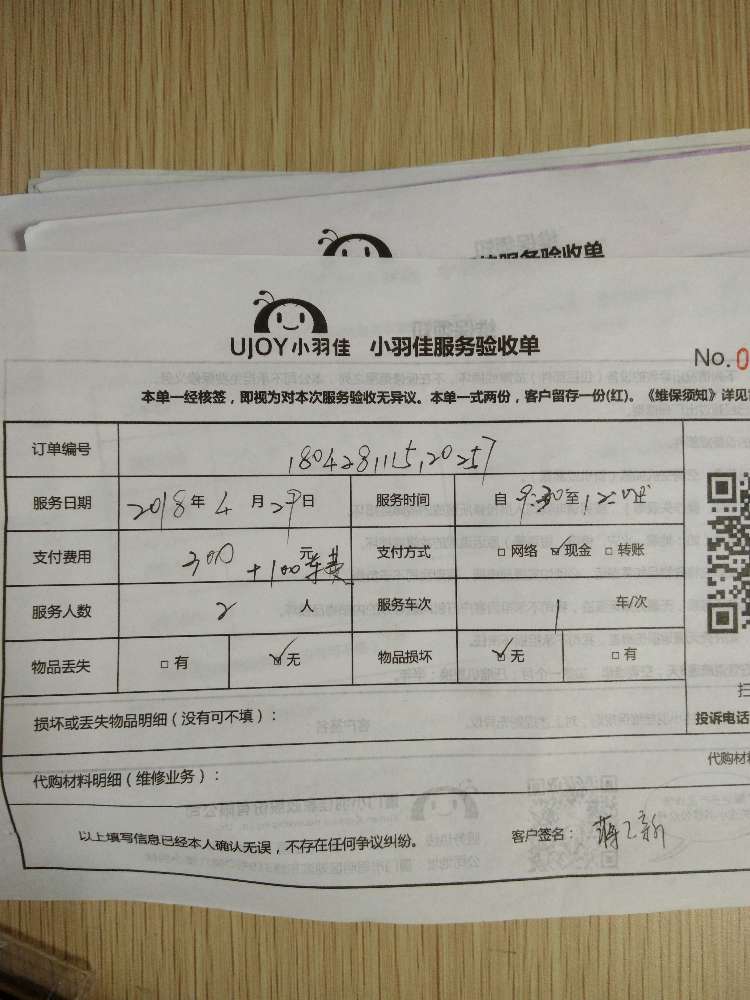 服务验收单
UJOY小羽佳 小羽佳服务验收单
No.0
本单一经核签，即视为对本次服务验收无异议。本单一式两份，客户留存一份(红)。《维保须知》详见
订单编号 180428115120257
服务日期 2018年4月29日 服务时间 自9:30至12:00
支付费用 300元+100车费 支付方式 □网络 ☑现金 □转账
服务人数 2人 服务车次 1车/次
物品丢失 □有 ☑无 物品损坏 ☑无 □有
扫
损坏或丢失物品明细（没有可不填）：
投诉电话
代购材料
代购材料明细（维修业务）：
以上填写信息已经本人确认无误，不存在任何争议纠纷。 客户签名：